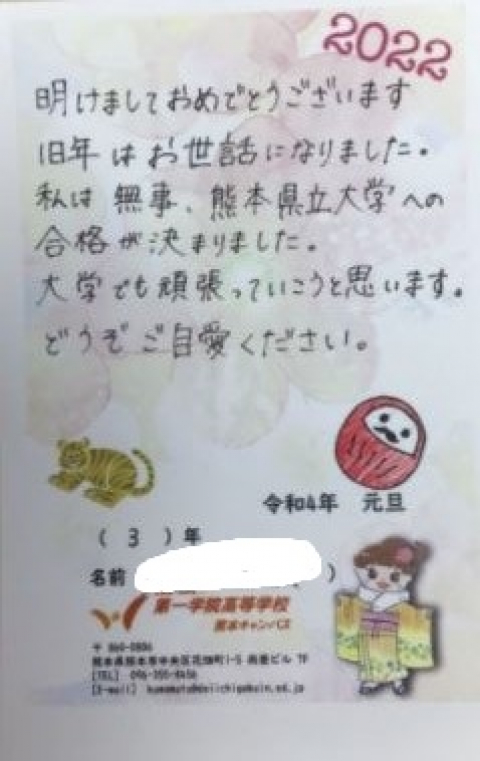 2022
明けましておめでとうございます
旧年はお世話になりました。
私は無事、熊本県立大学への
合格が決まりました。
大学でも頑張っていこうと思います。
どうぞご自愛ください。
令和4年 元旦
( 3 )年
名前 )
第一学院高等学校
熊本キャンパス
〒860-0806
熊本県熊本市中央区花畑町1-5 ビル 7F
[TEL] 096-355-8656
[E-mail] kumamoto@daiichigakuin.ed.jp